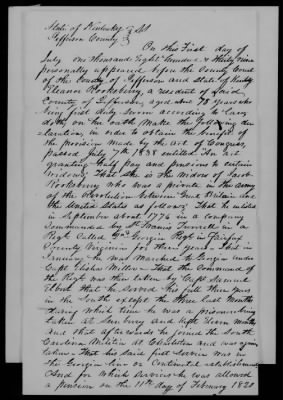 State of Kentucky } Sct
Jefferson County }
On this First day of
July one thousand Eight hundred & thirty nine
personally appeared before the County Court
of the County of Jefferson and State of Kenty
Eleanor Rooksberry, a resident of said
County of Jefferson, aged about 78 years who
being first duly sworn according to Law
doth on her oath make the following dec
laration, in order to obtain the benefit
of the provision made by the act of Congress
passed July 7th 1838 entitled An act
granting half pay and pensions to certain
widows, That she is the widow of Jacob
Rooksberry who was a private in the army
of the Revolution between Great Britain and
the United States as follows. That he
in September about 1776 in a company
Commanded by Lt Francis
Regt called Georgia Regt in Fairfax
County Virginia for three years. That in
January he was marched to Georgia under
Capt Elisha Miller. That the Command of
the Regt was then taken by Capt Samuel
Elbert that he served his full three years
in the South except the three last months
during which time he was a prisoner being
taken at Sunbury and kept three months
and that afterwards he joined the South
Carolina Militia at Charleton and was again
taken. That his said first service was in
the Georgia line or Continental establishment
And for which service he was allowed
a pension on the 11th day of February 1820